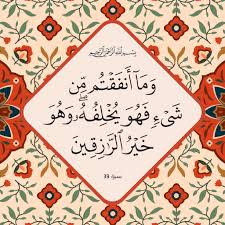 بسم الله الرحمن الرحيم
وَمَا أَنفَقْتُم مِّن
شَيْءٍ فَهُوَ يُخْلِفُهُ ۖ وَهُوَ
خَيْرُ الرَّازِقِينَ
39